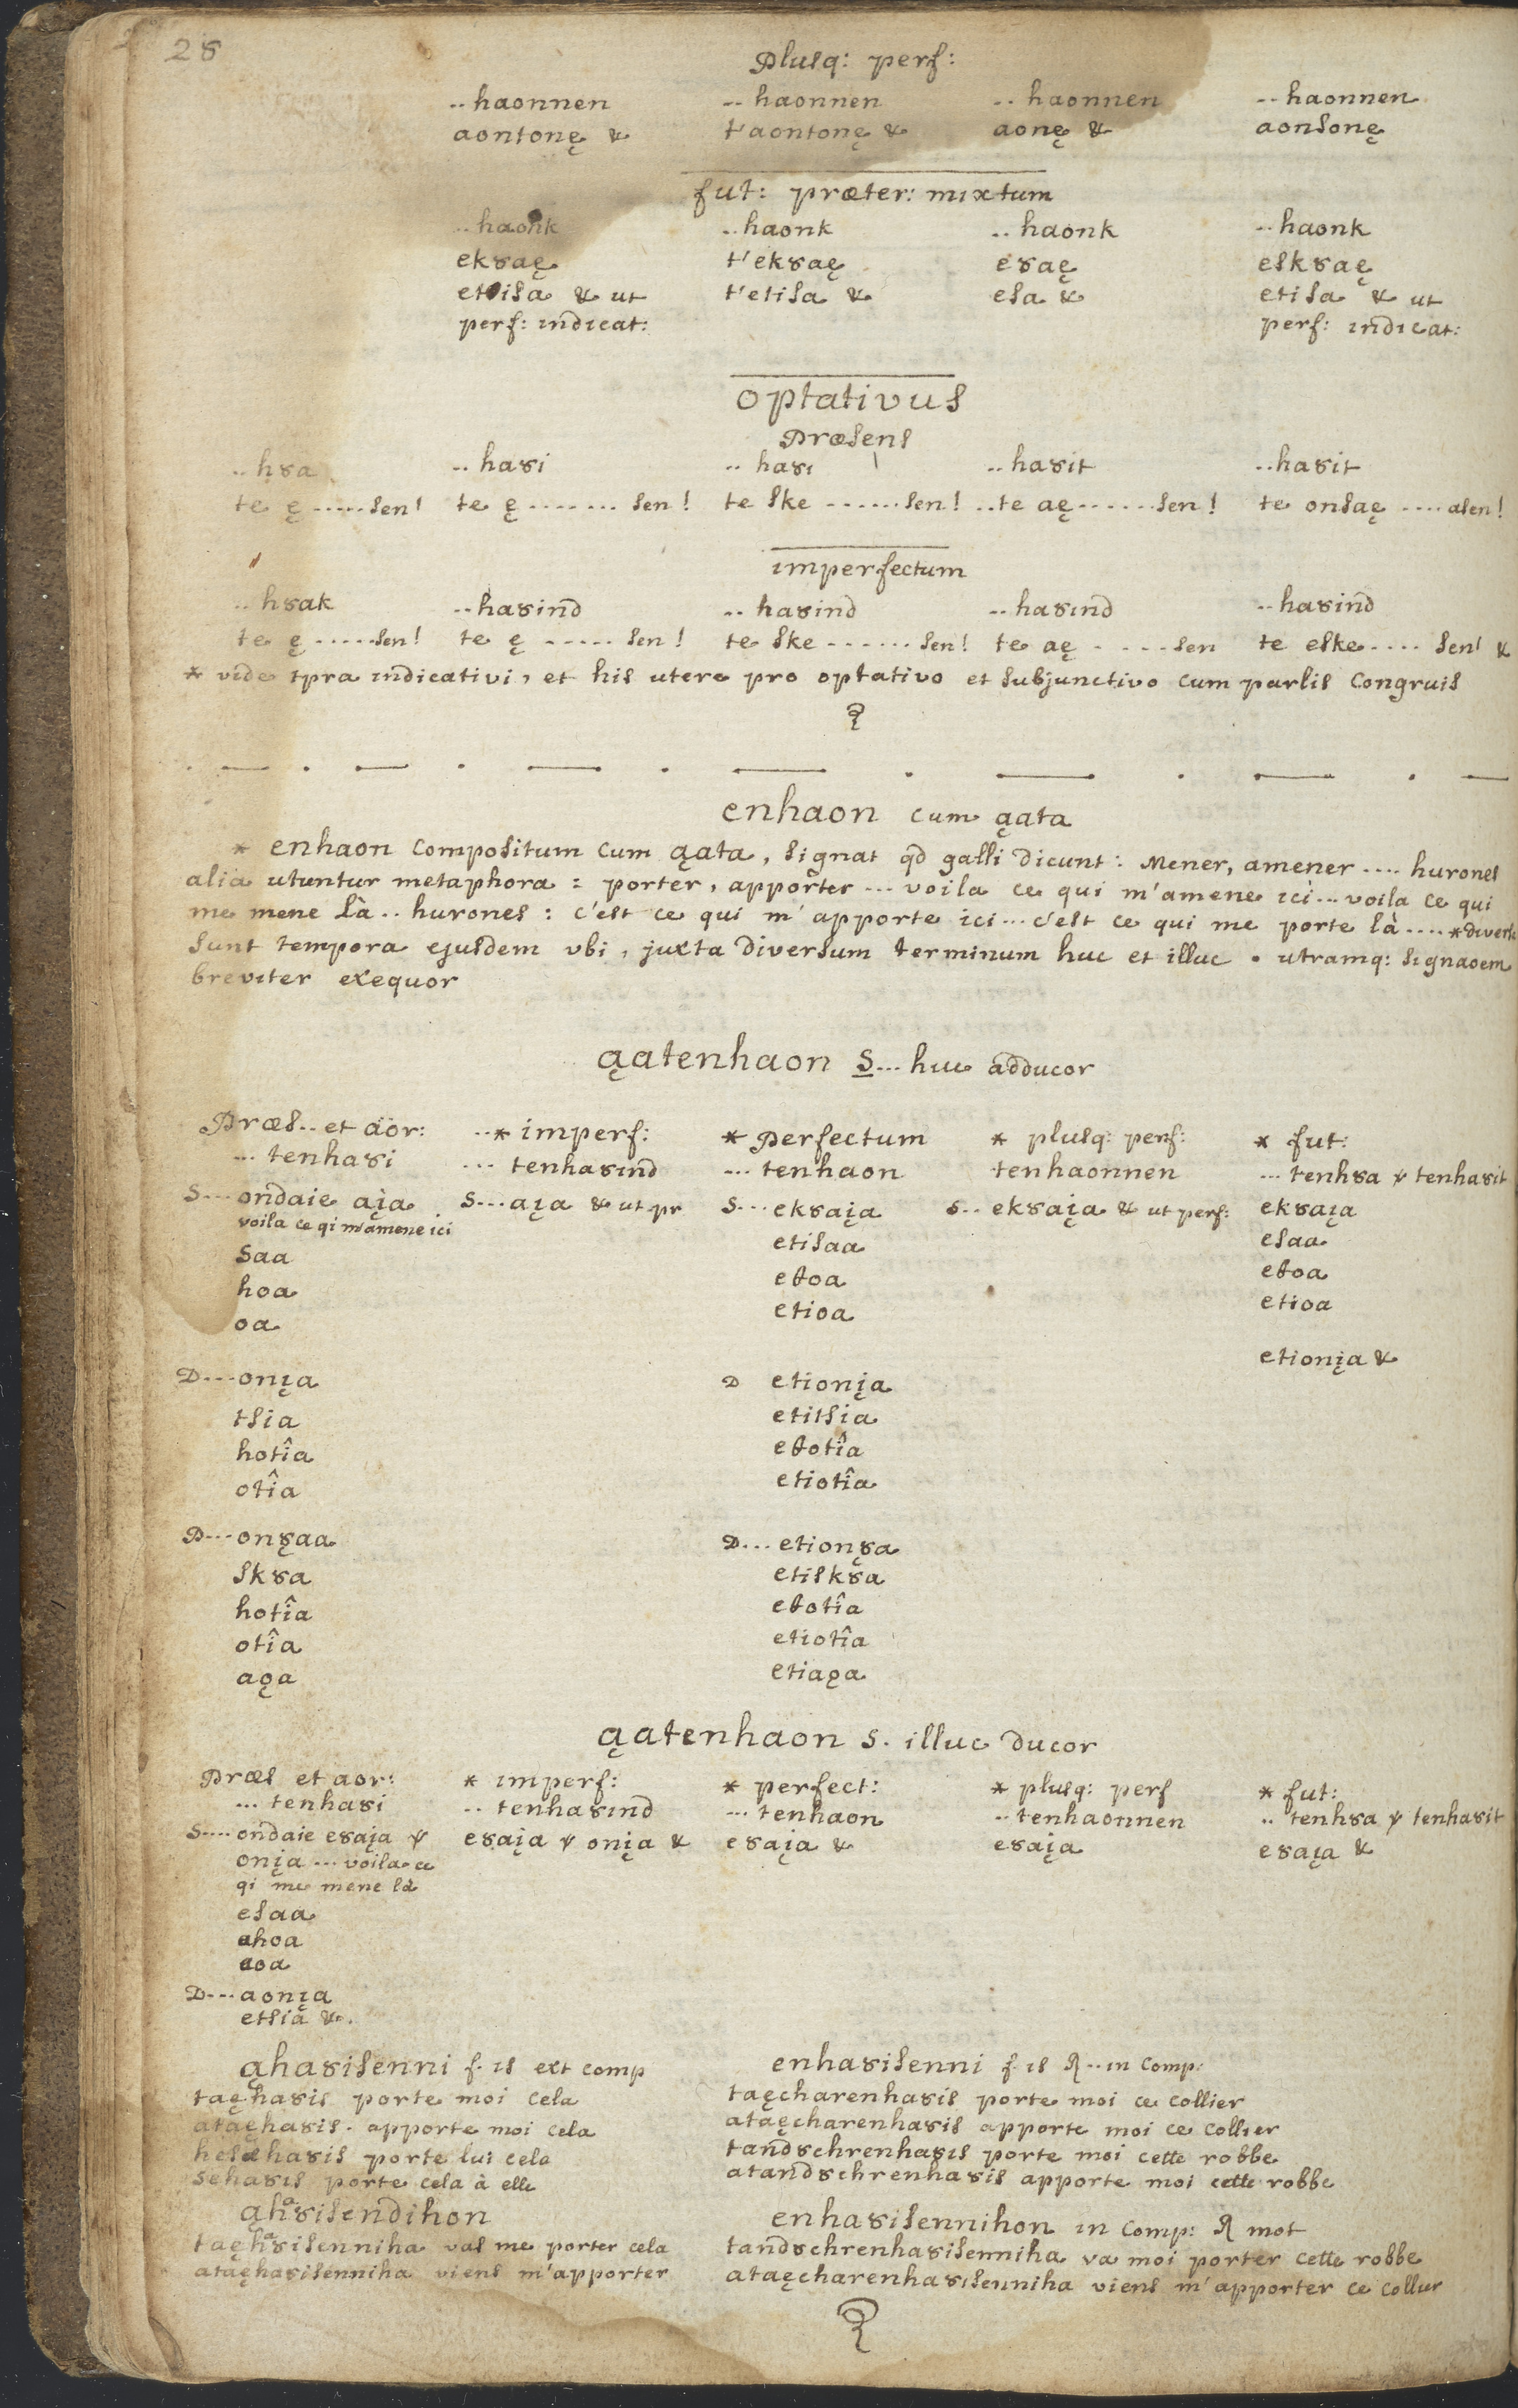 28
Plusq: perf:
..haonnen ..haonnen ..haonnen ..haonnen
aontonę & t'aontonę & aonę & aonsonę
fut: præter: mixtum
..haonk ..haonk ..haonk ..haonk
ekȣaę t'ekȣaę eȣaę eskȣaę
etisa & ut t'etisa & esa & etisa & ut
perf: indicat: perf: indicat:
optativus
Præsens
..hȣa ..haȣi ..haȣi ..haȣit ..haȣit
te ę .....sen! te ę ........ sen! te ske .......sen! ..te aę.......sen! te onsaę ....asen!
imperfectum
..hȣak ..haȣind ..haȣind ..haȣind ..haȣind
te ę .....sen! te ę ...... sen! te ske ....... sen! te aę . ....sen te eske.... sen! &
* vide spra indicativi, et his utere pro optativo et subjunctivo cum parlis congruis
enhaon cum ąata
* enhaon compositum cum ąata, signat qd galli dicunt: Mener, amener .... hurones
alia utuntur metaphora: porter, apporter ... voila ce qui m'amene ici ... voila ce qui
me mene là .. hurones: c'est ce qui m'apporte ici ... c'est ce qui me porte là .... * divers
sunt tempora ejusdem vbi, juxta diversum terminum huc et illuc . utramq: signaoem
breviter exequor
ąatenhaon S... huc adducor
Præs.. et aor: ..* imperf: * Perfectum * plusq: perf: * fut:
... tenhaȣi ... tenhaȣind ... tenhaon tenhaonnen ... tenhȣa ɣ tenhaȣit
S... ondaie aįa S...aįa & ut pr S...ekȣaįa S.. ekȣaįa & ut perf: ekȣaįa
voila ce qi m'amene ici
saa etisaa esaa
hoa eθoa eθoa
oa etioa etioa
etionįa &
D...onįa D etionįa
tsia etitsia
hotîa eθotîa
otîa etiotîa
P...onȣ̨aa P...etionȣ̨a
skȣa etiskȣa
hotîa eθotîa
otîa etiotîa
aǫa etiaǫa
ąatenhaon S. illuc ducor
Præs et aor: * imperf: * perfect: * plusq: perf * fut:
... tenhaȣi .. tenhaȣind ... tenhaon .. tenhaonnen .. tenhȣa ɣ tenhaȣit
S.... ondaie eȣaįa ɣ eȣaįa ɣ onįa & eȣaįa & eȣaįa eȣaįa &
onįa ... voila ce
qi me mene là
esaa
ahoa
aoa
D...aonįa
etsia &.
ąhaȣisenni f. is ext comp enhaȣisenni f. is R .. in comp:
taęhaȣis porte moi cela taęcharenhaȣis porte moi ce collier
ataęhaȣis. apporte moi cela ataęcharenhaȣis apporte moi ce collier
hesehaȣis porte lui cela tandȣchrenhaȣis porte moi cette robbe
sehaȣis porte cela à elle atandȣchrenhaȣis apporte moi cette robbe
ąhaȣisendihon enhaȣisennihon in comp: R mot
taęhaȣisenniha vas me porter cela tandȣchrenhaȣisenniha va moi porter cette robbe
ataęhaȣisenniha viens m'apporter ataęcharenhaȣisenniha viens m'apporter ce collier